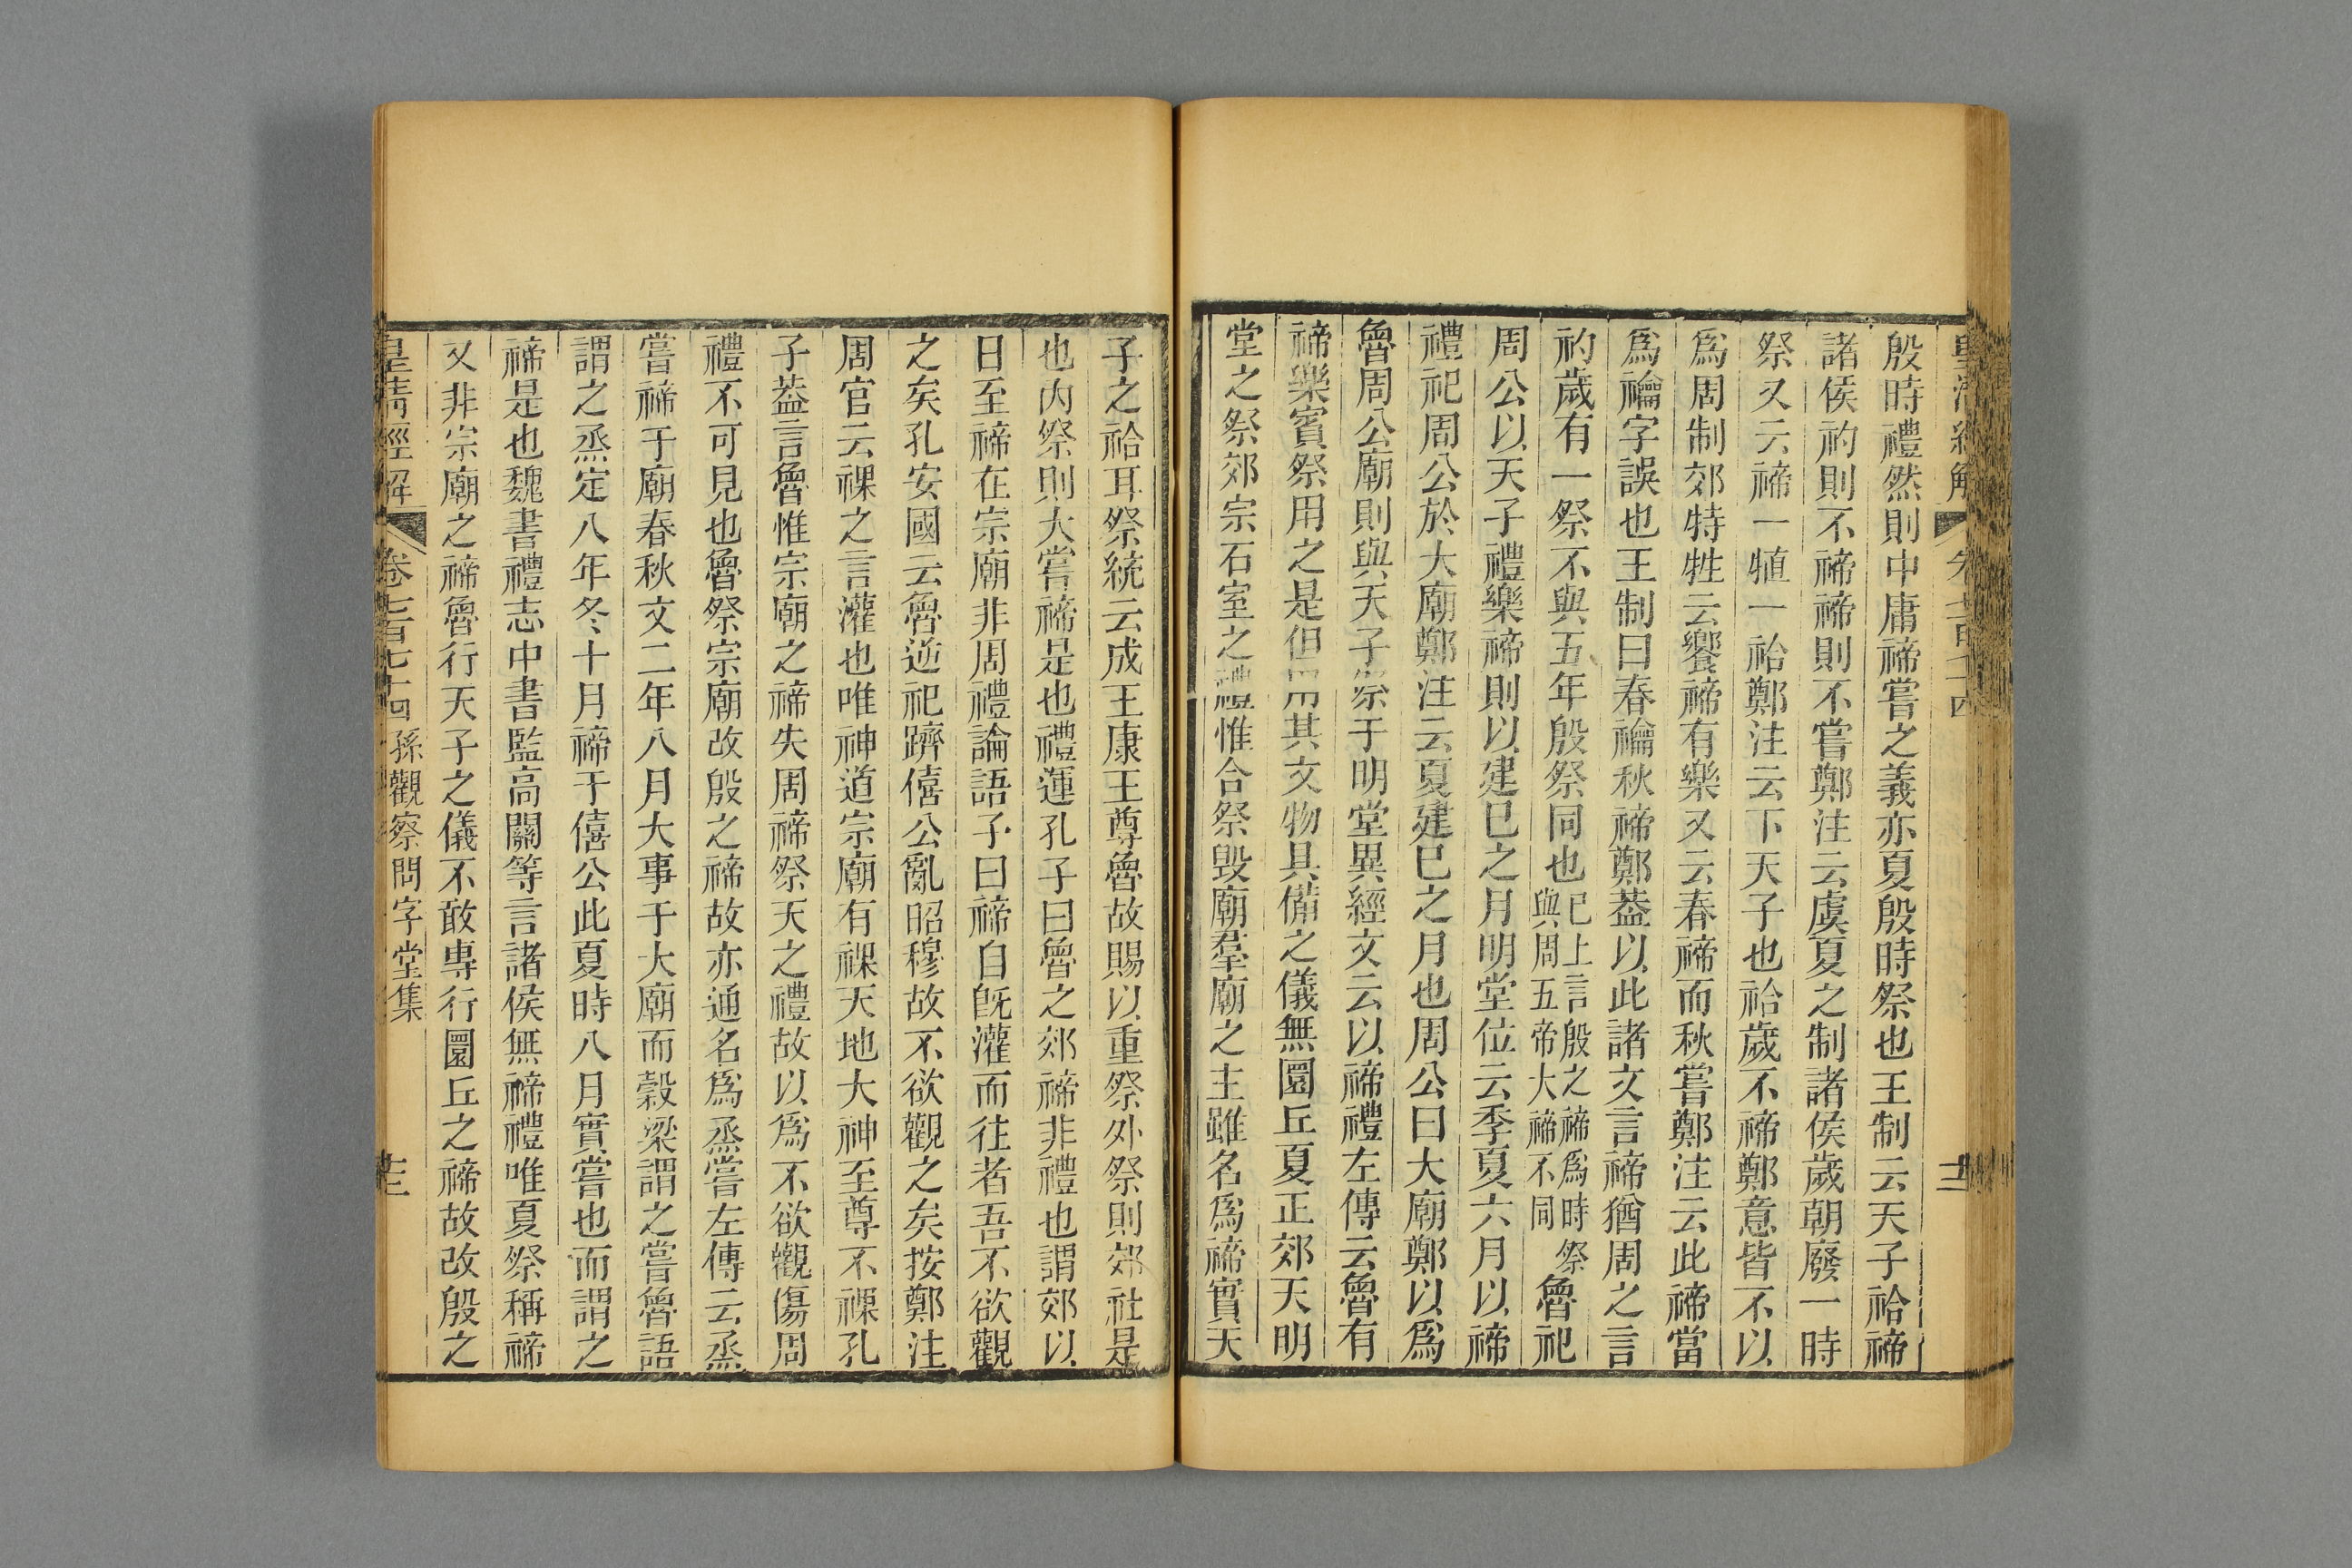 殷時禮然則中庸禘嘗之義亦夏殷時祭也王制云天子祫禘
諸侯礿則不禘禘則不嘗鄭注云虞夏之制諸侯歲朝廢一時
祭又云禘一犆一祫鄭注云下天子也祫歲不禘鄭意皆不以
爲周制郊特牲云饗禘有樂又云春禘而秋嘗鄭注云此禘當
爲禴字誤也王制曰春禴秋禘鄭葢以此諸文言禘猶周之言
礿歲有一祭不與五年殷祭同也已上言殷之禘爲時祭與周五帝大禘不同魯祀
周公以天子禮樂禘則以建巳之月明堂位云季夏六月以禘
禮祀周公於大廟鄭注云夏建巳之月也周公曰大廟鄭以爲
魯周公廟則與天子祭于明堂異經文云以禘禮左傳云魯有
禘樂賓祭用之是但用其文物具備之儀無圜丘夏正郊天明
堂之祭郊宗石室之禮惟合祭毀廟羣廟之主雖名爲禘實天
子之祫耳祭統云成王康王尊魯故賜以重祭外祭則郊社是
也内祭則大嘗禘是也禮運孔子曰魯之郊禘非禮也謂郊以
日至禘在宗廟非周禮論語子曰禘自旣灌而往者吾不欲觀
之矣孔安國云魯逆祀躋僖公亂昭穆故不欲觀之矣按鄭注
周官云祼之言灌也唯神道宗廟有祼天地大神至尊不祼孔
子葢言魯惟宗廟之禘失周禘祭天之禮故以爲不欲觀傷周
禮不可見也魯祭宗廟改殷之禘故亦通名爲烝嘗左傳云烝
嘗禘于廟春秋文二年八月大事于大廟而穀梁謂之嘗魯語
謂之烝定八年冬十月禘于僖公此夏時八月實嘗也而謂之
禘是也魏書禮志中書監高閭等言諸侯無禘禮唯夏祭稱禘
又非宗廟之禘魯行天子之儀不敢專行圜丘之禘故改殷之
皇清經解 卷七百七十四 孫觀察問字堂集 十三